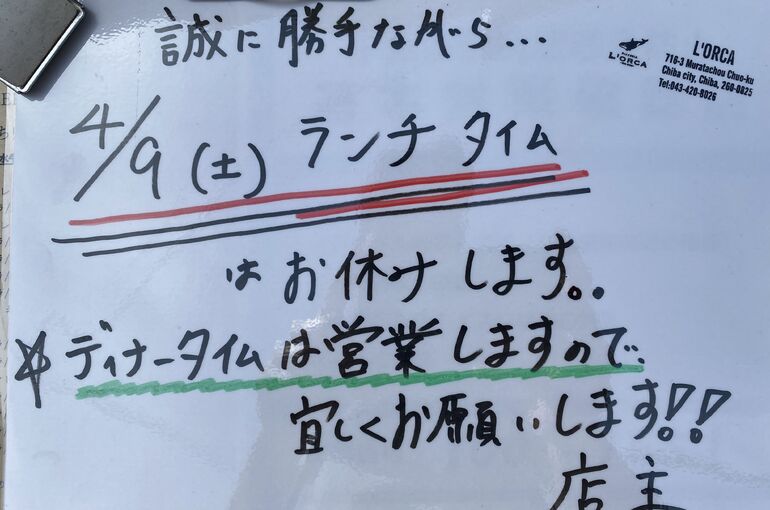 誠に勝手ながら...
L'ORCA
L'ORCA
716-3 Muratachou Chuo-ku
Chiba city, Chiba, 260-0825
Tel:043-420-8026
4/9(土) ランチタイム
はお休みします。.
☆ディナータイムは営業しますので、
宜しくお願いします!!
店主